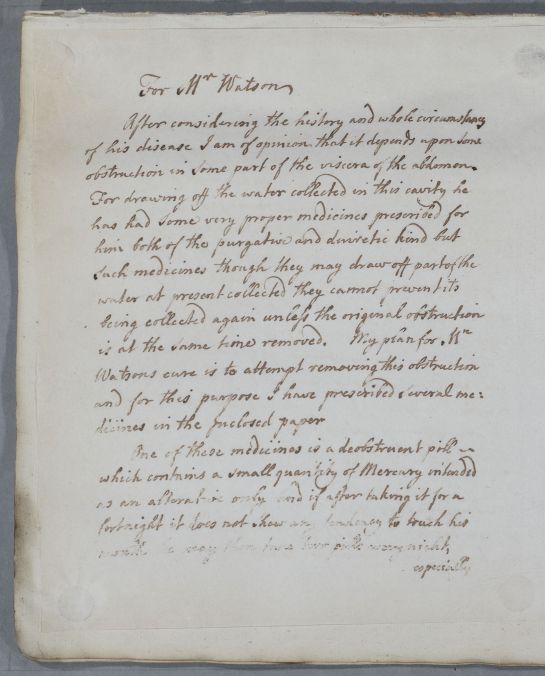 For Mr Watson
After considering the history and whole circumstances
of his disease I am of opinion that it depends upon some
obstruction in some part of the viscera of the abdomen.
For drawing off the water collected in this cavity he
has had some very proper medicines prescribed for
him both of the purgative and diuretic kind but
such medicines though they may draw off part of the
water at present collected they cannot prevent its
being collected again unless the original obstruction
is at the same time removed. My plan for Mr
Watsons cure is to attempt removing this obstruction
and for this purpose I have prescribed several me:
dicines in the inclosed paper
One of these medicines is a deobstruent pill
which contains a small quantity of Mercury intended
as an alterative only and if after taking it for a
fortnight it does not shew any tendency to touch his
mouth he may then take four pills every night,
especially